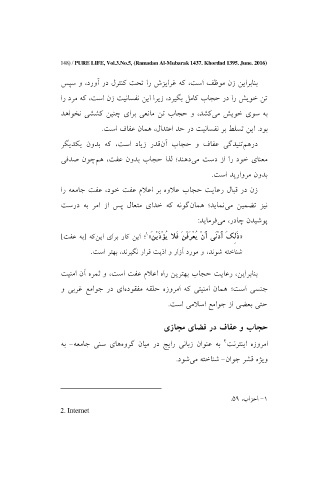 148/ PURE LIFE, Vol.3.No.5, (Ramadan Al-Mubarak 1437. Khordad 1395. June. 2016)
بنابراین زن موظف است، که غرایزش را تحت کنترل در آورد، و سپس
تن خویش را در حجاب کامل بگیرد، زیرا این نفسانیت زن است، که مرد را
به سوی خویش می‌کشد، و حجاب تن مانعی برای چنین کششی نخواهد
بود. این تسلط بر نفسانیت در حد اعتدال، همان عفاف است.
درهم‌تنیدگی عفاف و حجاب آن‌قدر زیاد است، که بدون یکدیگر
معنای خود را از دست می‌دهند؛ لذا حجاب بدون عفت، هم‌چون صدفی
بدون مروارید است.
زن در قبال رعایت حجاب علاوه بر اعلام عفت خود، عفت جامعه را
نیز تضمین می‌نماید؛ همان‌گونه که خدای متعال پس از امر به درست
پوشیدن چادر، می‌فرماید:
«ذَلِکَ أَدْنَى أَنْ یُعْرَفْنَ فَلَا یُؤْذَیْنَ»¹؛ این کار برای این‌که [به عفت]
شناخته شوند، و مورد آزار و اذیت قرار نگیرند، بهتر است.
بنابراین، رعایت حجاب بهترین راه اعلام عفت است، و ثمره آن امنیت
جنسی است؛ همان امنیتی که امروزه حلقه مفقوده‌ای در جوامع غربی و
حتی بعضی از جوامع اسلامی است.
حجاب و عفاف در فضای مجازی
امروزه اینترنت² به عنوان زبانی رایج در میان گروه‌های سنی جامعه- به
ویژه قشر جوان- شناخته می‌شود.
۱- احزاب، ۵۹.
2. Internet